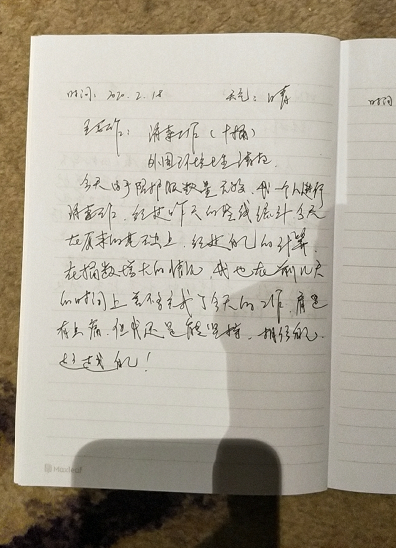 时间：2020.2.18 天气：晴 时间
主要工作：消毒工作（十桶）
外围环境卫生清扫
今天由于防护服数量不够，我一个人进行
消毒工作，经过昨天的路线统计今天
在原来的基础上，经过自己的计算，
在桶数增大的情况，我也在前几天
的时间上差不多完成了今天的工作，肩还
在上痛，但我还是能坚持，相信自己，
超越自己！
Maxleaf